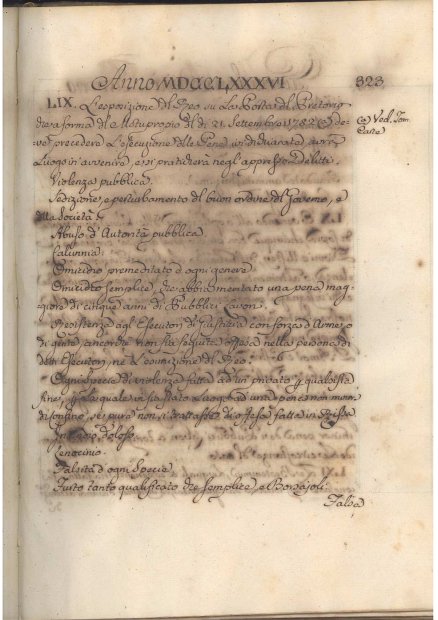 Anno MDCCLXXXVI 323
LIX. L'esposizione del Reo su La Porta del Pretorio
che a forma del Motuproprio del dì 21. Settembre 1782 (a) de-
ve precedere L'esecuzione delle Pene avrà
Luogo in avvenire, e si praticherà negl'appresso Delitti.
(a) Ved. Tom.
Carte
Violenza pubblica.
Sedizione, e perturbamento del buon ordine del Governo, e
della Società.
Abuso d'Autorità pubblica
Calunnia.
Omicidio premeditato d'ogni genere
Omicidio semplice, che abbia meritato una pena mag-
giore di cinque anni di Pubblici Lavori.
Resistenza agl'Esecutori di Giustizia con forza d'Arme, o
di gente, ancorchè non sia seguita offesa nella persona di
detti Esecutori, nè L'evasione del Reo.
Ogni specie di violenza fatta ad un privato p qualsisia
fine, p la quale sia stato Luogo ad una pena non minore
di confino, se pure non si trattasse di offesa fatta in Rissa
Incendio doloso.
Lenocinio
Falsità d'ogni Specie
Furto tanto qualificato che semplice, e Borsajoli.
Falsa